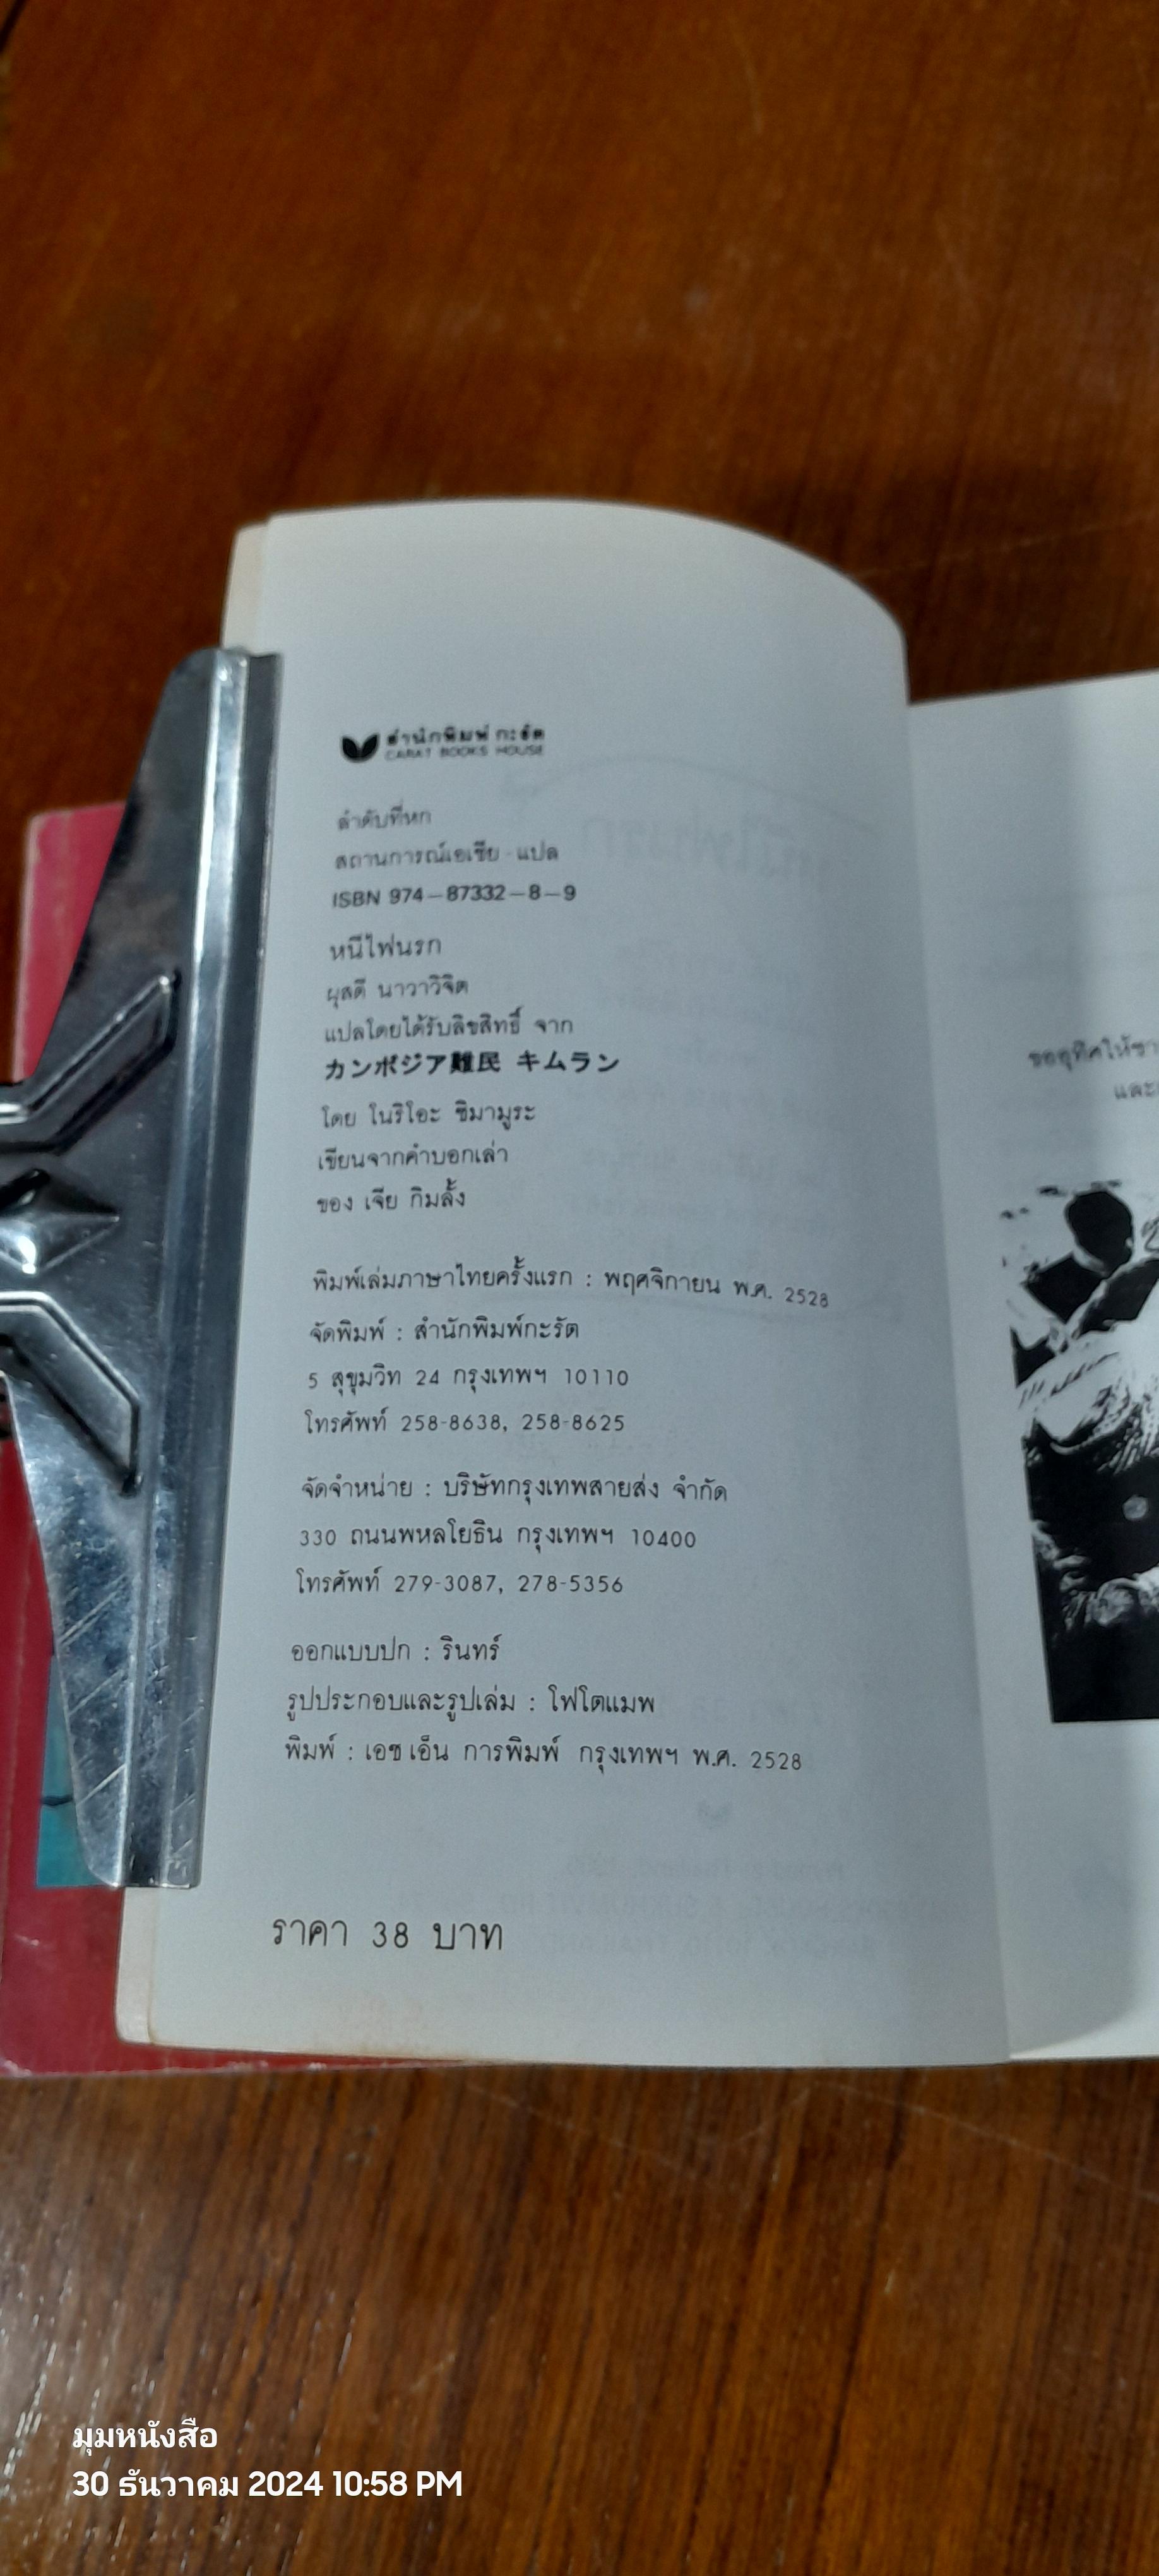 สำนักพิมพ์กะรัต
CARAT BOOKS HOUSE
ลำดับที่หก
สถานการณ์เอเชีย - แปล
ISBN 974-87332-8-9
หนีไฟนรก
ผุสดี นาวาวิจิต
แปลโดยได้รับลิขสิทธิ์ จาก
カンボジア難民 キムラン
โดย โนริโอะ ชิมามูระ
เขียนจากคำบอกเล่า
ของ เจีย กิมลั้ง
พิมพ์เล่มภาษาไทยครั้งแรก : พฤศจิกายน พ.ศ. 2528
จัดพิมพ์ : สำนักพิมพ์กะรัต
5 สุขุมวิท 24 กรุงเทพฯ 10110
โทรศัพท์ 258-8638, 258-8625
จัดจำหน่าย : บริษัทกรุงเทพสายส่ง จำกัด
330 ถนนพหลโยธิน กรุงเทพฯ 10400
โทรศัพท์ 279-3087, 278-5356
ออกแบบปก : รินทร์
รูปประกอบและรูปเล่ม : โฟโตแมพ
พิมพ์ : เอช เอ็น การพิมพ์ กรุงเทพฯ พ.ศ. 2528
ราคา 38 บาท
ขออุทิศให้ชา
และ
มุมหนังสือ
30 ธันวาคม 2024 10:58 PM